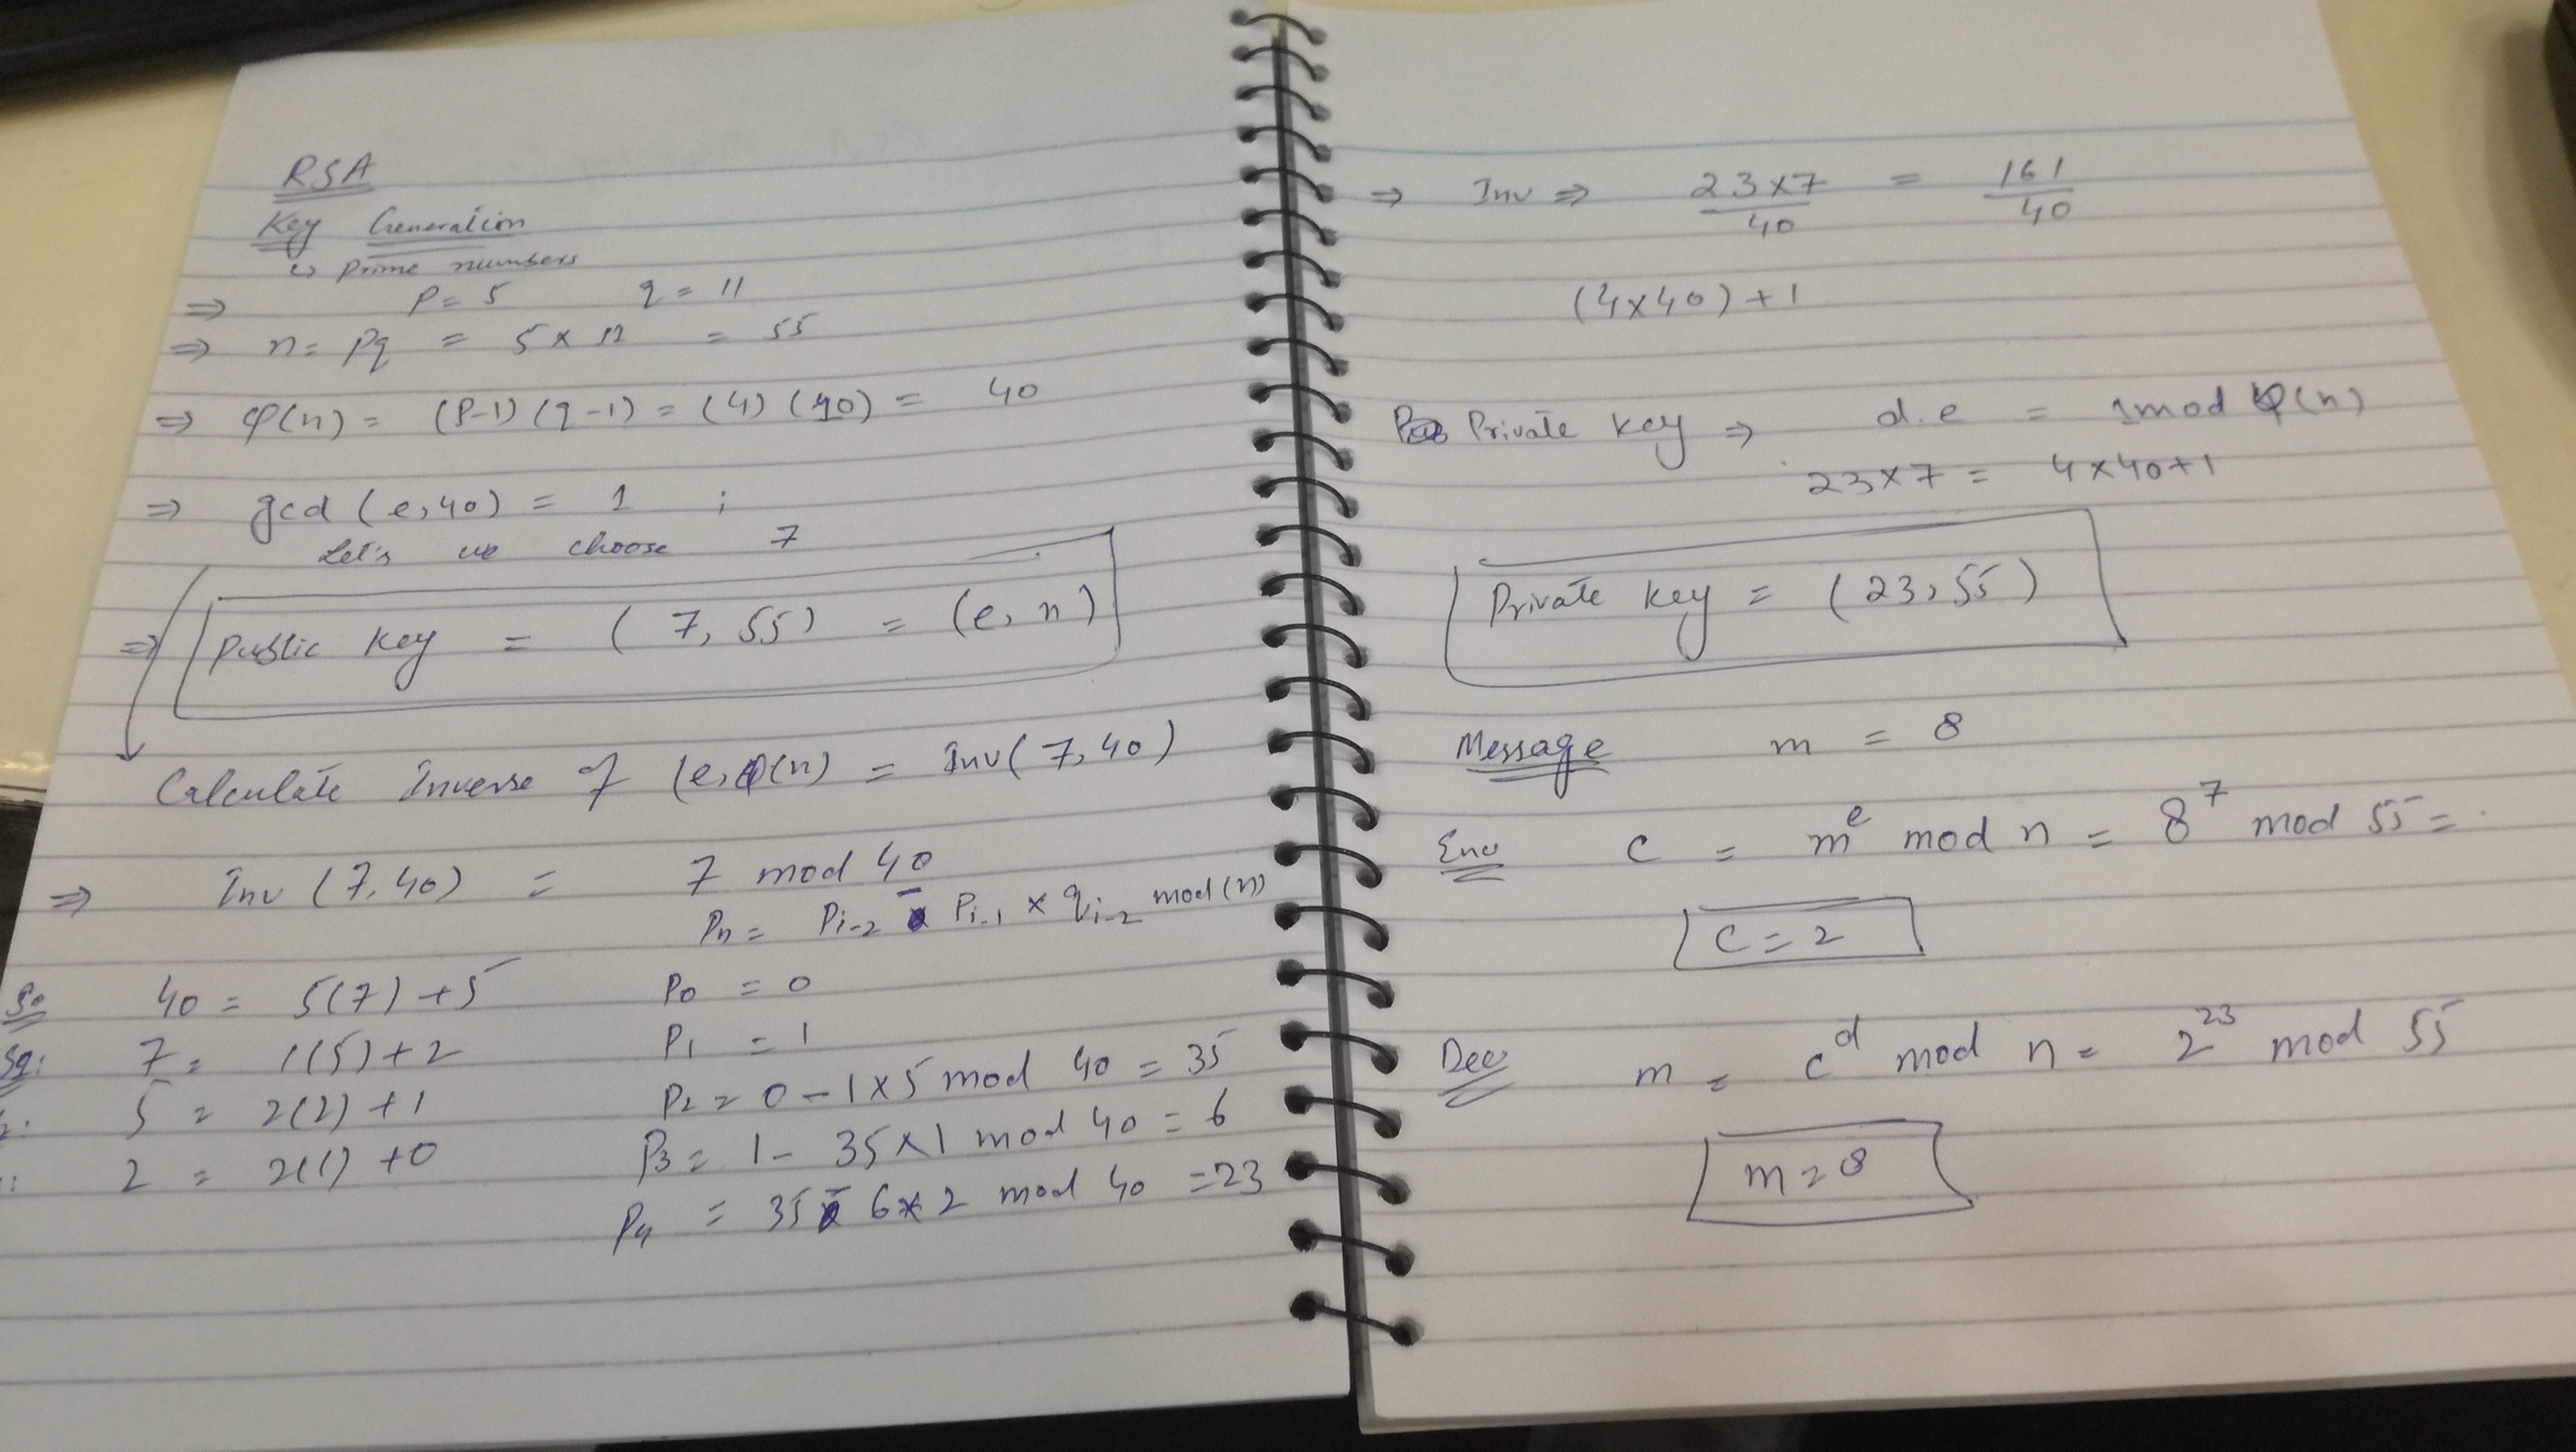 RSA
Key Generation
↳ Prime numbers
⇒ P = 5 q = 11
⇒ n = pq = 5 × 11 = 55
⇒ φ(n) = (P-1)(q-1) = (4)(10) = 40
⇒ gcd(e,40) = 1 ;
Let's we choose 7
⇒ Public Key = (7, 55) = (e, n)
Calculate Inverse of (e, φ(n) = Inv(7,40)
⇒ Inv(7,40) = 7 mod 40
Pn = Pi-2 - Pi-1 × qi-2 mod(n)
40 = 5(7) + 5 P0 = 0
7 = 1(5) + 2 P1 = 1
5 = 2(2) + 1 P2 = 0 - 1×5 mod 40 = 35
2 = 2(1) + 0 P3 = 1 - 35×1 mod 40 = 6
P4 = 35 - 6×2 mod 40 = 23
⇒ Inv ⇒ 23×7/40 = 161/40
(4×40)+1
Private Key ⇒ d.e = 1mod φ(n)
23×7 = 4×40+1
Private Key = (23,55)
Message m = 8
Enc c = m^e mod n = 8^7 mod 55 =
c = 2
Dec m = c^d mod n = 2^23 mod 55
m = 8